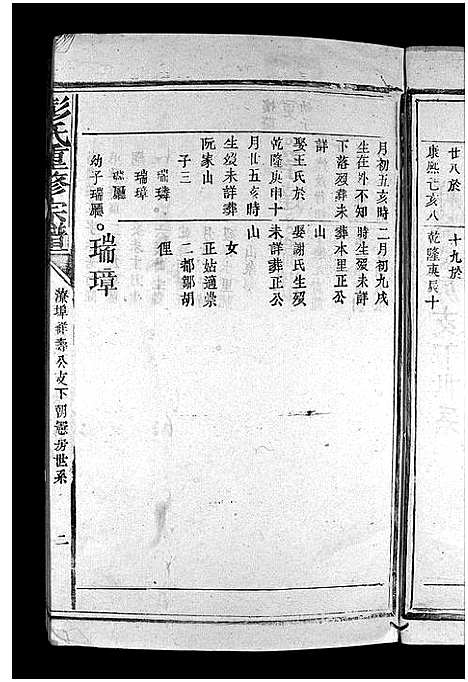 廿八於
康熙己亥八
十九於
乾隆庚辰十
月初五亥時
生在外不知
下落歿葬未
詳
娶王氏於
乾隆庚申十
月廿五亥時
生歿未詳葬
阮家山
子三
瑞璘
瑞璋
瑞廳
幼子瑞廳
二月初九戌
時生歿未詳
葬本里正公
山
娶謝氏生歿
未詳葬正公
山
女
正姑適崇
二都鄒胡
俚
。瑞璋
彭氏重修宗譜
潦埠祥壽公支下朝憲房世系
二